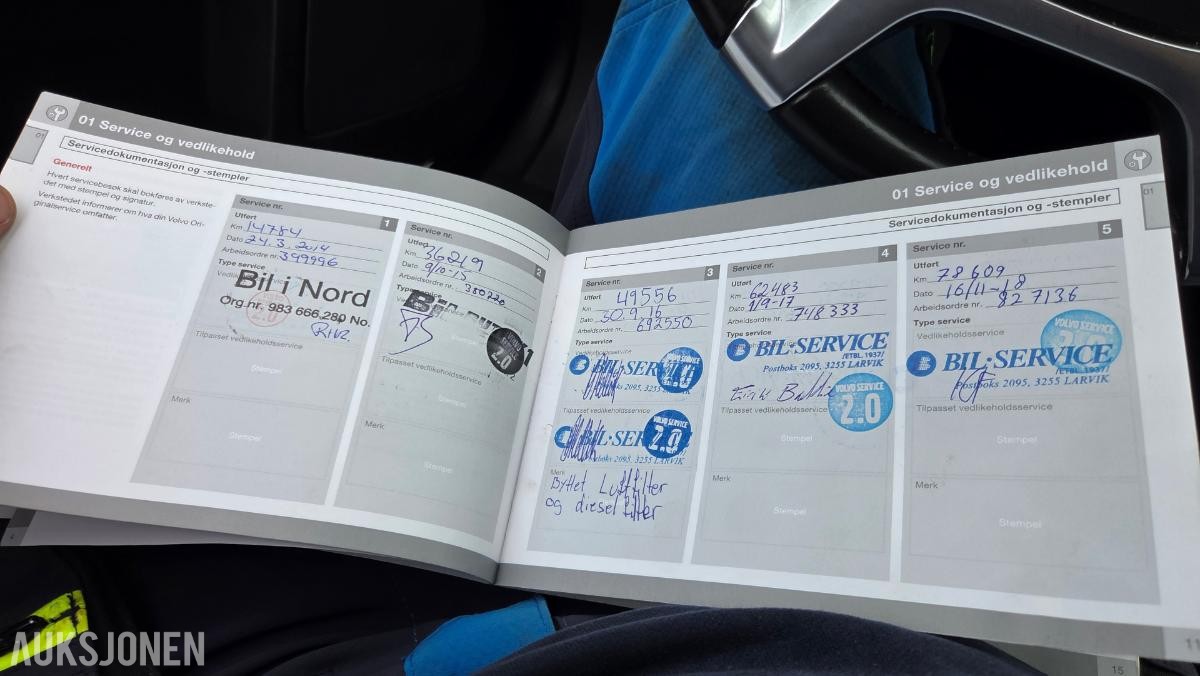 01 Service og vedlikehold
01
Servicedokumentasjon og -stempler
Generelt
Hvert servicebesøk skal bokføres av verkste-
det med stempel og signatur.
Verkstedet informerer om hva din Volvo Ori-
ginalservice omfatter.
Service nr. 1
Utført
Km 14784
Dato 24.3.2014
Arbeidsordre nr. 399996
Type service
Bil i Nord
Org.nr. 983 666.280
2.0
Tilpasset vedlikeholdsservice
Stempel
Merk
Stempel
Service nr. 2
Utført
Km 36219
Dato 9/10-15
Arbeidsordre nr. 350220
Type service
2.0
Tilpasset vedlikeholdsservice
Stempel
Merk
Stempel
01 Service og vedlikehold
01
Servicedokumentasjon og -stempler
Service nr. 3
Utført
Km 49556
Dato 30.9.16
Arbeidsordre nr. 692550
Type service
BIL·SERVICE
Postboks 2095, 3255 LARVIK
2.0
Tilpasset vedlikeholdsservice
BIL·SERVICE
Postboks 2095, 3255 LARVIK
VOLVO SERVICE
2.0
Merk
Byttet Luftfilter
og diesel filter
Service nr. 4
Utført
Km 62483
Dato 1/9-17
Arbeidsordre nr. 748333
Type service
BIL·SERVICE
/ETBL. 1937/
Postboks 2095, 3255 LARVIK
VOLVO SERVICE
2.0
Tilpasset vedlikeholdsservice
Stempel
Merk
Stempel
Service nr. 5
Utført
Km 78609
Dato 16/11-18
Arbeidsordre nr. 827136
Type service
Vedlikeholdsservice
VOLVO SERVICE
BIL·SERVICE
/ETBL. 1937/
Postboks 2095, 3255 LARVIK
Tilpasset vedlikeholdsservice
Stempel
Merk
Stempel
11
15
AUKSJONEN